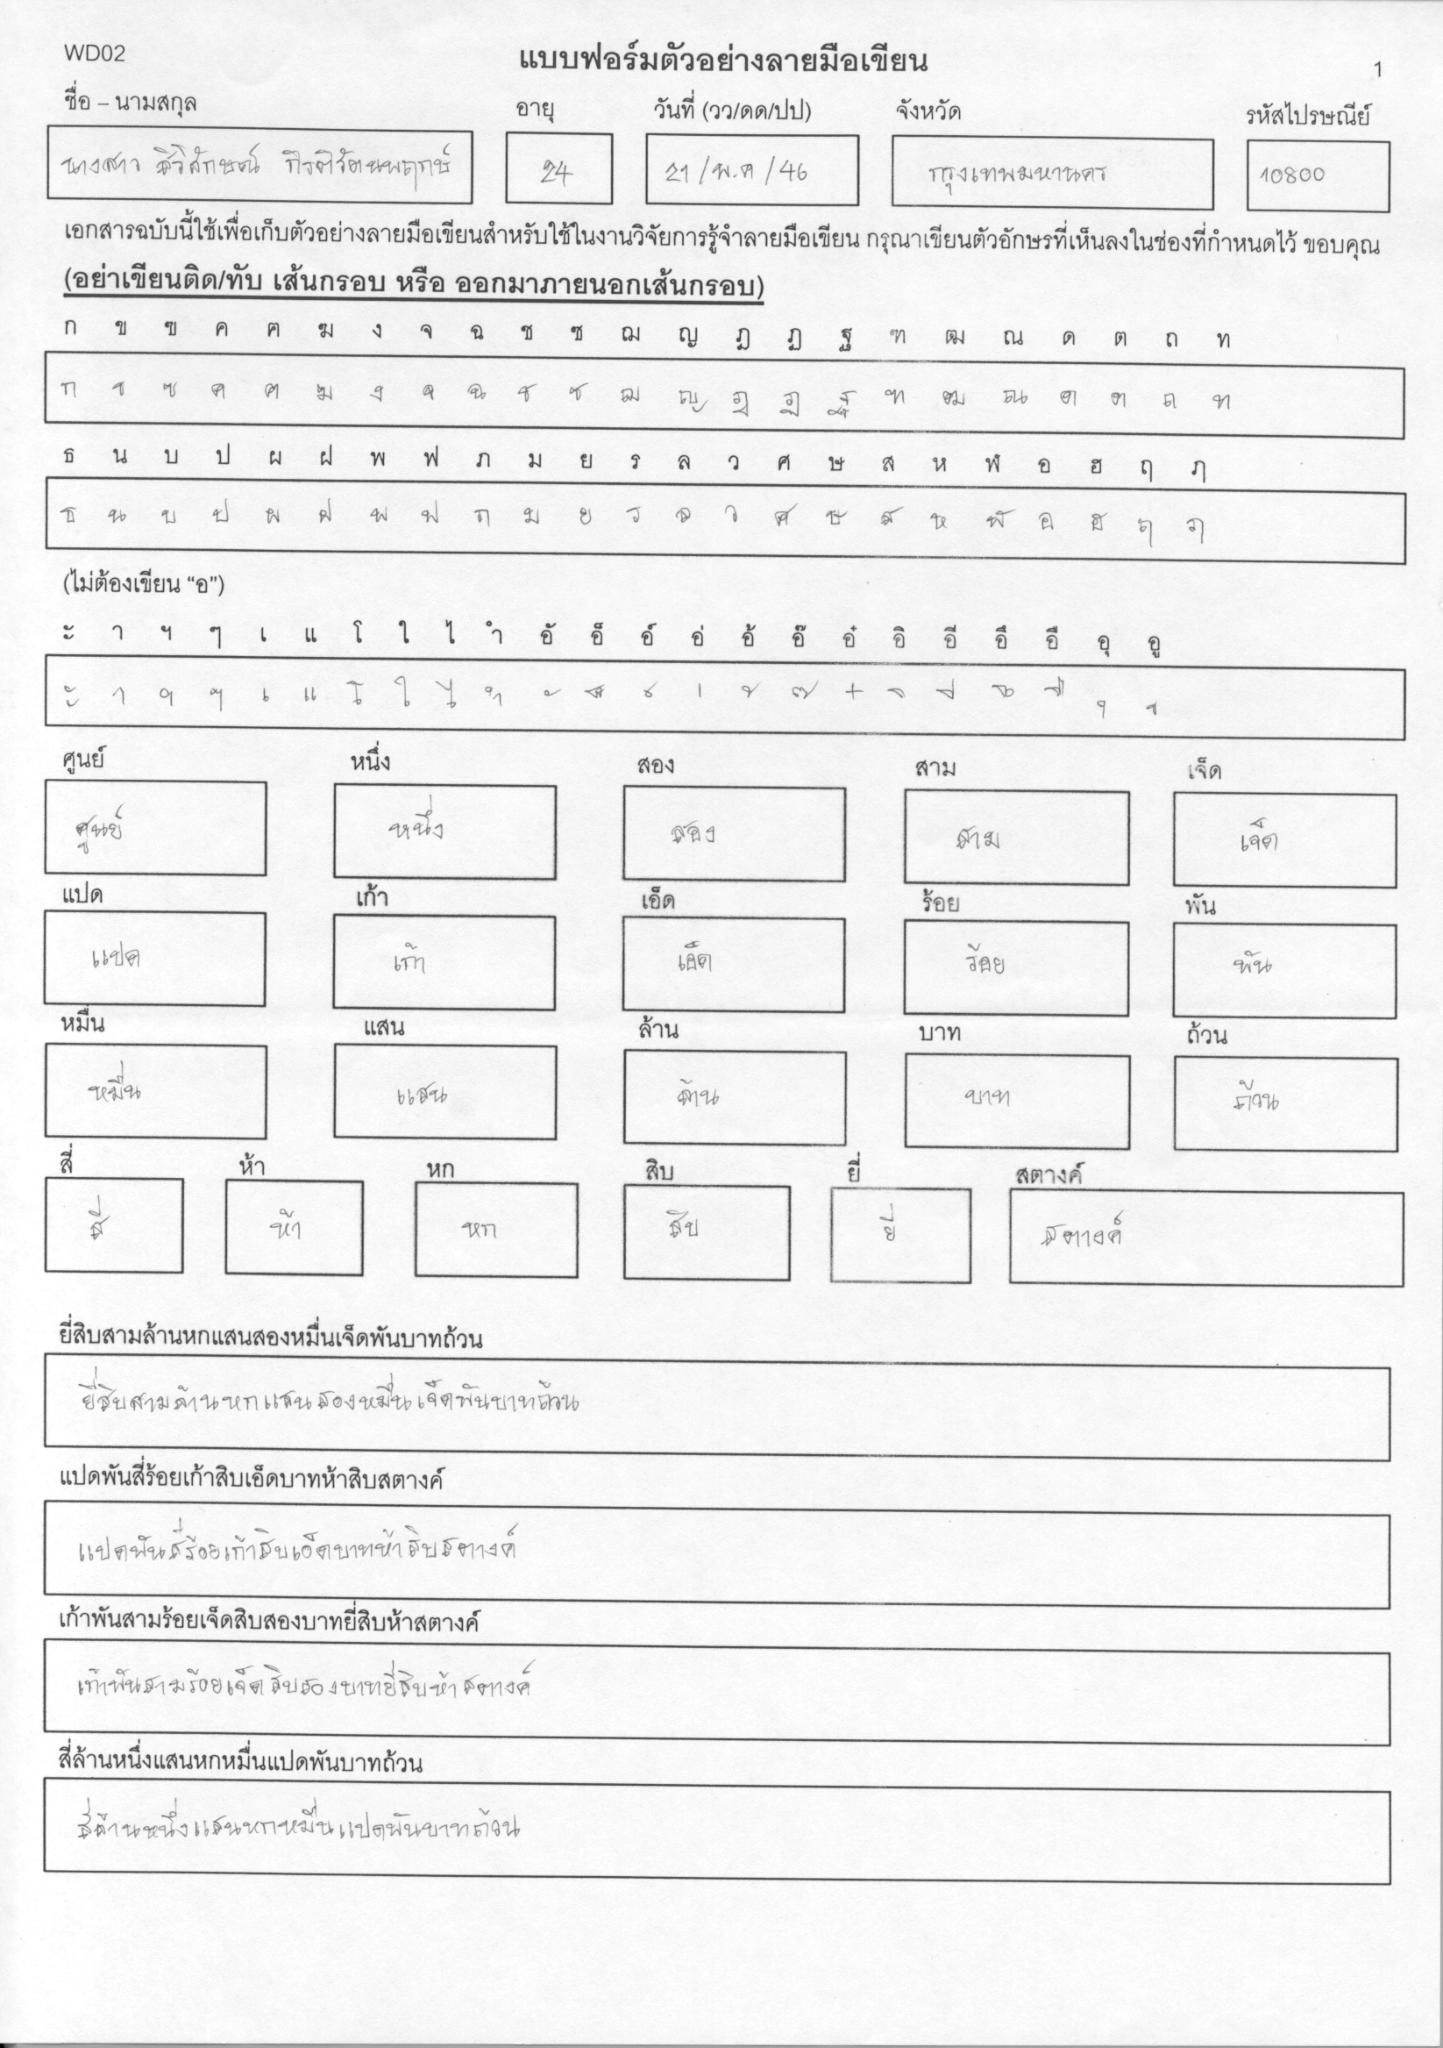 WD02
แบบฟอร์มตัวอย่างลายมือเขียน
1
ชื่อ – นามสกุล อายุ วันที่ (วว/ดด/ปป) จังหวัด รหัสไปรษณีย์
นางสาว สิริลักษณ์ กิรติรัตนพฤกษ์ 24 21/พ.ค/46 กรุงเทพมหานคร 10800
เอกสารฉบับนี้ใช้เพื่อเก็บตัวอย่างลายมือเขียนสำหรับใช้ในงานวิจัยการรู้จำลายมือเขียน กรุณาเขียนตัวอักษรที่เห็นลงในช่องที่กำหนดไว้ ขอบคุณ
(อย่าเขียนติด/ทับ เส้นกรอบ หรือ ออกมาภายนอกเส้นกรอบ)
ก ข ฃ ค ฅ ฆ ง จ ฉ ช ซ ฌ ญ ฎ ฏ ฐ ฑ ฒ ณ ด ต ถ ท
ก ข ฃ ค ฅ ฆ ง จ ฉ ช ซ ฌ ญ ฎ ฏ ฐ ฑ ฒ ณ ด ต ถ ท
ธ น บ ป ผ ฝ พ ฟ ภ ม ย ร ล ว ศ ษ ส ห ฬ อ ฮ ฤ ฦ
ธ น บ ป ผ ฝ พ ฟ ภ ม ย ร ล ว ศ ษ ส ห ฬ อ ฮ ฤ ฦ
(ไม่ต้องเขียน “อ”)
ะ า ฯ ๆ เ แ โ ใ ไ ำ อั อ็ อ์ อ่ อ้ อ๊ อ๋ อิ อี อึ อื อุ อู
ะ า ฯ ๆ เ แ โ ใ ไ ำ ั ็ ์ ่ ้ ๊ ๋ ิ ี ึ ื ุ ู
ศูนย์ หนึ่ง สอง สาม เจ็ด
ศูนย์ หนึ่ง สอง สาม เจ็ด
แปด เก้า เอ็ด ร้อย พัน
แปด เก้า เอ็ด ร้อย พัน
หมื่น แสน ล้าน บาท ถ้วน
หมื่น แสน ล้าน บาท ถ้วน
สี่ ห้า หก สิบ ยี่ สตางค์
สี่ ห้า หก สิบ ยี่ สตางค์
ยี่สิบสามล้านหกแสนสองหมื่นเจ็ดพันบาทถ้วน
ยี่สิบสามล้านหกแสนสองหมื่นเจ็ดพันบาทถ้วน
แปดพันสี่ร้อยเก้าสิบเอ็ดบาทห้าสิบสตางค์
แปดพันสี่ร้อยเก้าสิบเอ็ดบาทห้าสิบสตางค์
เก้าพันสามร้อยเจ็ดสิบสองบาทยี่สิบห้าสตางค์
เก้าพันสามร้อยเจ็ดสิบสองบาทยี่สิบห้าสตางค์
สี่ล้านหนึ่งแสนหกหมื่นแปดพันบาทถ้วน
สี่ล้านหนึ่งแสนหกหมื่นแปดพันบาทถ้วน